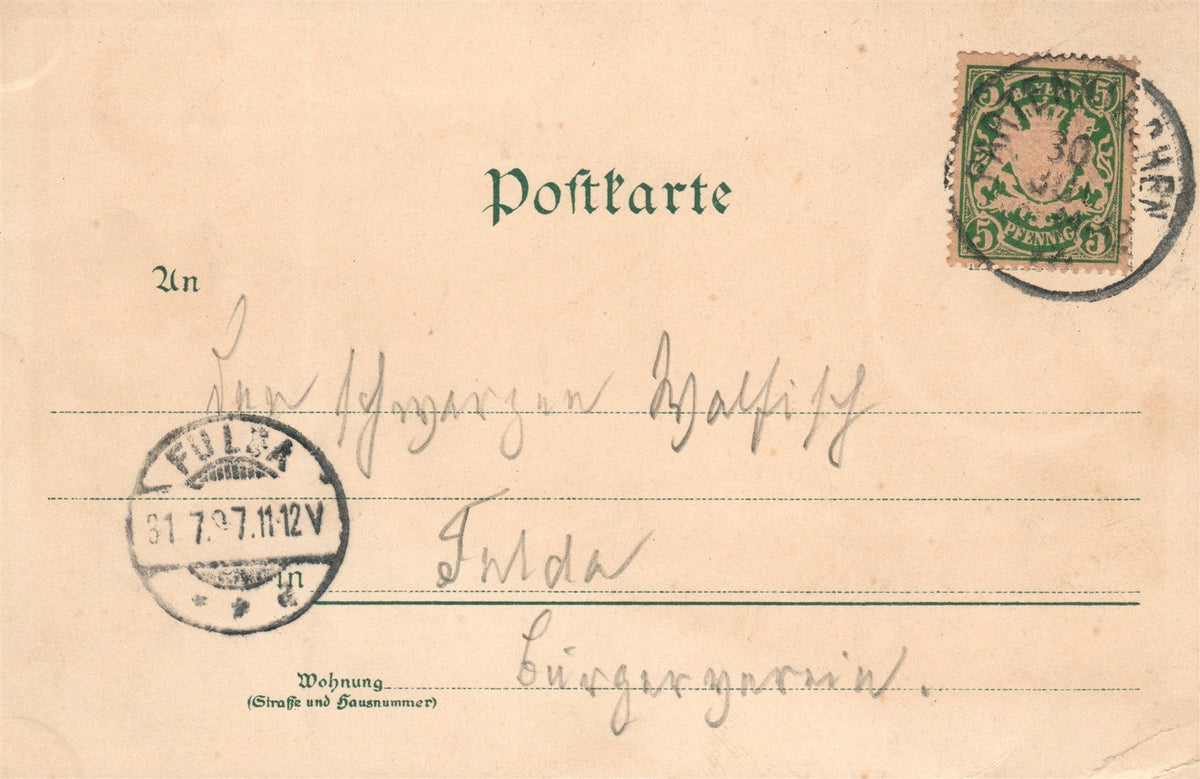 Postkarte
5 BAYERN 5
5 PFENNIG 5
PARTENKIRCHEN
30
JUL
An
Den schwarzen Walfisch
FULDA
31 7.97.11-12V
in Fulda
Bürgerverein.
Wohnung
(Straße und Hausnummer)